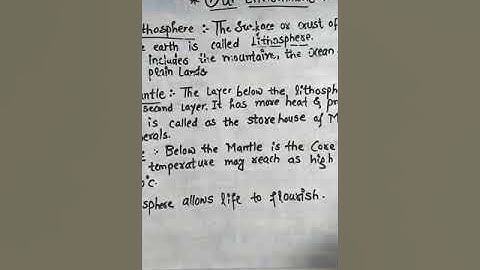 * Our
ithosphere :- The Surface or crust of
e earth is called Lithosphere.
includes the mountains, the ocean
plain Lands
antle :- The Layer below the lithosph
second layer. It has more heat & pr
is called as the store house of M
nerals.
:- Below the Mantle is the Core
temperature may reach as high
0°c.
sphere allows life to flourish.